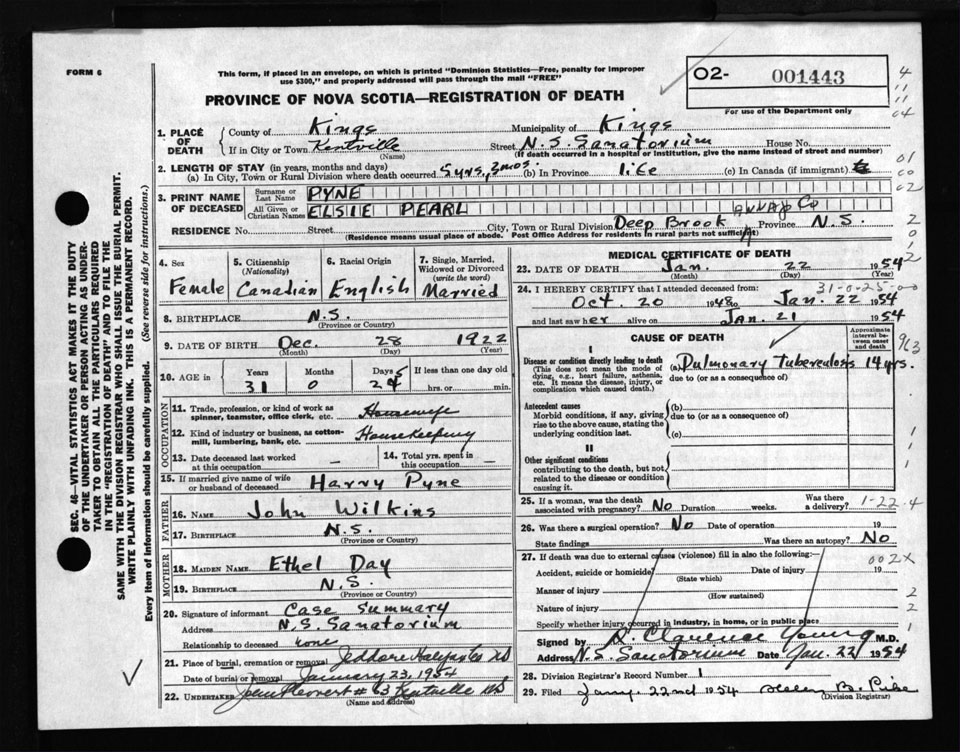 FORM 6
This form, if placed in an envelope, on which is printed "Dominion Statistics—Free, penalty for improper
use $300," and properly addressed will pass through the mail "FREE"
O2- 001443
For use of the Department only
PROVINCE OF NOVA SCOTIA—REGISTRATION OF DEATH
1. PLACE OF DEATH
County of Kings Municipality of Kings
If in City or Town Kentville (Name) Street N.S. Sanatorium House No.
(If death occurred in a hospital or institution, give the name instead of street and number)
2. LENGTH OF STAY (in years, months and days)
(a) In City, Town or Rural Division where death occurred 5yrs, 3mos (b) In Province life (c) In Canada (if immigrant)
3. PRINT NAME OF DECEASED
Surname or Last Name PYNE
All Given or Christian Names ELSIE PEARL
RESIDENCE No. Street City, Town or Rural Division Deep Brook Annap Co Province N.S.
(Residence means usual place of abode. Post Office Address for residents in rural parts not sufficient)
4. Sex Female
5. Citizenship (Nationality) Canadian
6. Racial Origin English
7. Single, Married, Widowed or Divorced (write the word) Married
8. BIRTHPLACE N.S.
(Province or Country)
9. DATE OF BIRTH Dec. 28 1922
(Month) (Day) (Year)
10. AGE in Years Months Days If less than one day old
31 0 25 hrs. or min.
OCCUPATION
11. Trade, profession, or kind of work as spinner, teamster, office clerk, etc. Housewife
12. Kind of industry or business, as cotton-mill, lumbering, bank, etc. Housekeeping
13. Date deceased last worked at this occupation –
14. Total yrs. spent in this occupation –
15. If married give name of wife or husband of deceased Harry Pyne
FATHER
16. NAME John Wilkins
17. BIRTHPLACE N.S.
(Province or Country)
MOTHER
18. MAIDEN NAME Ethel Day
19. BIRTHPLACE N.S.
(Province or Country)
20. Signature of informant Case Summary
Address N.S. Sanatorium
Relationship to deceased none
21. Place of burial, cremation or removal Jeddore Halifax Co NS
Date of burial or removal January 23, 1954
22. UNDERTAKER # 63 Kentville NS
(Name and address)
MEDICAL CERTIFICATE OF DEATH
23. DATE OF DEATH Jan. 22 1954
(Month) (Day) (Year)
31-0-25-00
24. I HEREBY CERTIFY that I attended deceased from:
Oct. 20 1948 to Jan. 22 1954
and last saw her alive on Jan. 21 1954
CAUSE OF DEATH
Approximate interval between onset and death
I
Disease or condition directly leading to death
(This does not mean the mode of dying, e.g., heart failure, asthenia, etc. It means the disease, injury, or complication which caused death.)
(a) Pulmonary Tuberculosis 14 yrs.
due to (or as a consequence of)
Antecedent causes
Morbid conditions, if any, giving rise to the above cause, stating the underlying condition last.
(b)
due to (or as a consequence of)
(c)
II
Other significant conditions
contributing to the death, but not related to the disease or condition causing it.
25. If a woman, was the death associated with pregnancy? No Duration weeks. Was there a delivery? 1-22-4
26. Was there a surgical operation? No Date of operation 19
State findings Was there an autopsy? No
27. If death was due to external causes (violence) fill in also the following:— 002X
Accident, suicide or homicide? Date of injury 19
(State which)
Manner of injury
(How sustained)
Nature of injury
Specify whether injury occurred in industry, in home, or in public place
Signed by Clarence Young M.D.
Address N.S. Sanatorium Date Jan. 22 1954
28. Division Registrar's Record Number 1
29. Filed Jany. 22nd 1954 Helen B.
(Division Registrar)
SEC. 46—VITAL STATISTICS ACT MAKES IT THE DUTY
OF THE UNDERTAKER OR PERSON ACTING AS UNDER-
TAKER TO OBTAIN ALL THE PARTICULARS REQUIRED
IN THE "REGISTRATION OF DEATH" AND TO FILE THE
SAME WITH THE DIVISION REGISTRAR WHO SHALL ISSUE THE BURIAL PERMIT.
WRITE PLAINLY WITH UNFADING INK. THIS IS A PERMANENT RECORD.
Every item of Information should be carefully supplied. (See reverse side for instructions.)